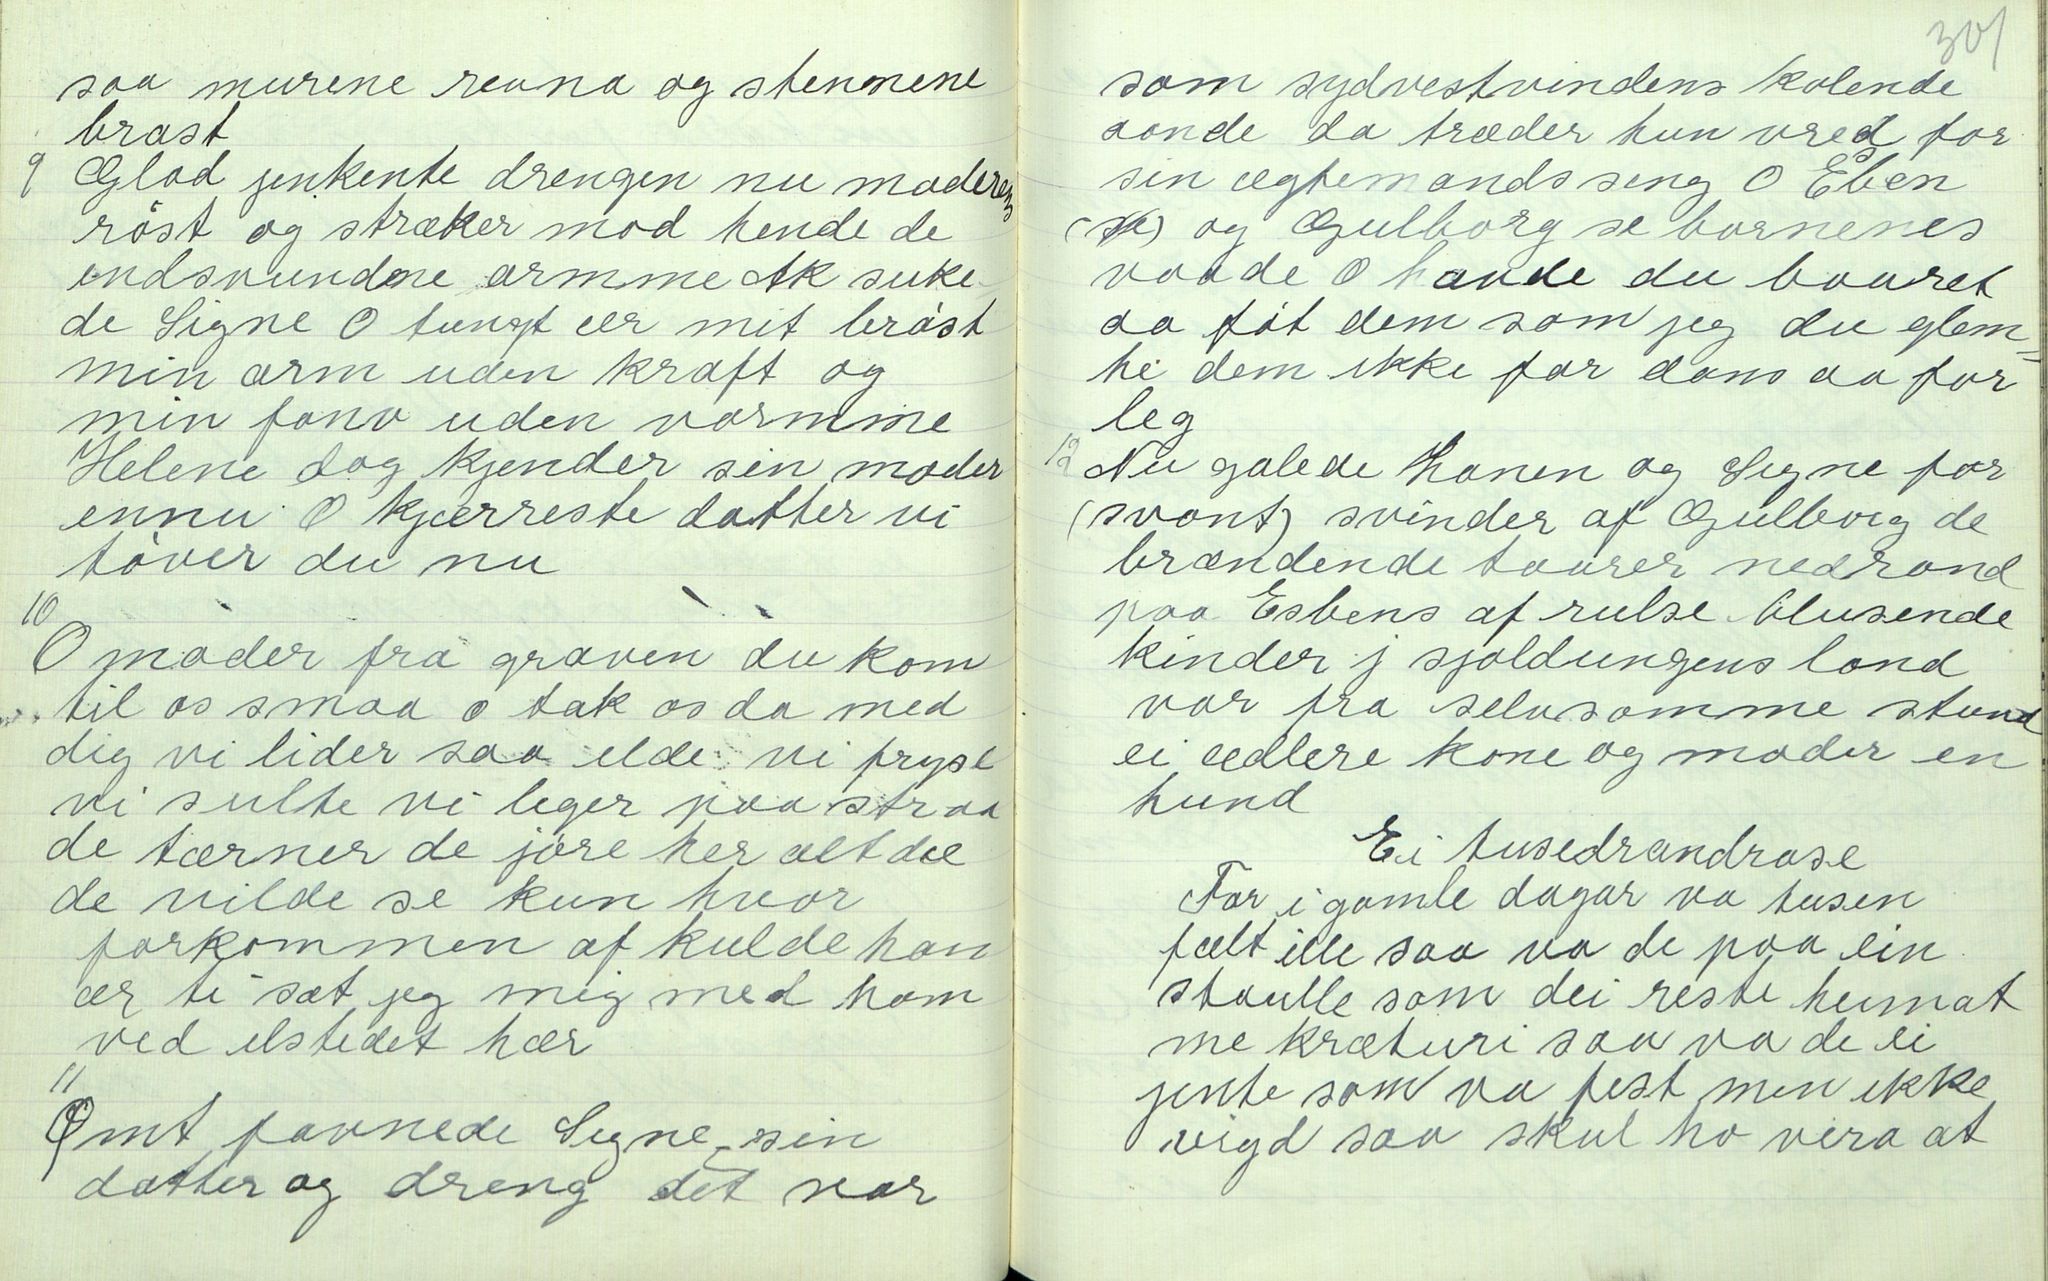 saa murene revna og stennene
brast
9 Glad jenkente drengen nu moderens
röst og stræker mod hende de
indsvundne armme Ak suke
de Signe O tungt ær mit bröst
min arm uden kraft og
min favn uden varmme
Helene dog kjender sin moder
ennu O kjærreste datter vi
töver du nu
10
O moder fra graven du kom
til os smaa o tak os da med
dig vi lider saa ilde vi fryse
vi sulte vi leger paa straa
de tærner de jöre her alt det
de vilde se kun hvor
forkommen af kulde han
ær ti sæt jeg mig med ham
ved ilstedet hær
11
Ömt favnede Signe sin
datter og dreng det var
301
som sydvestvindens kolende
aande da træder hun vred for
sin ægtemands seng O Esben
(se) og Gulborg se bornenes
vaade O havde du bouret
aa föt dem som jeg du glem=
te dem ikke for dans aa for
leg
12 Nu galede hanen og Signe for
(svant) svinder af Gulborg de
brændende taarer nedrand
paa Esbens af rulse blusende
kinder j sjoldungens land
var fra selvsamme stund
ei ædlere kone og moder en
hund
Ei tusedrandrase
For i gamle dagar va tusen
fælt ille saa va de paa ein
staulle som dei reste heimat
me kræturi saa va de ei
jente som va fest men ikke
vigd saa skul ho vera at